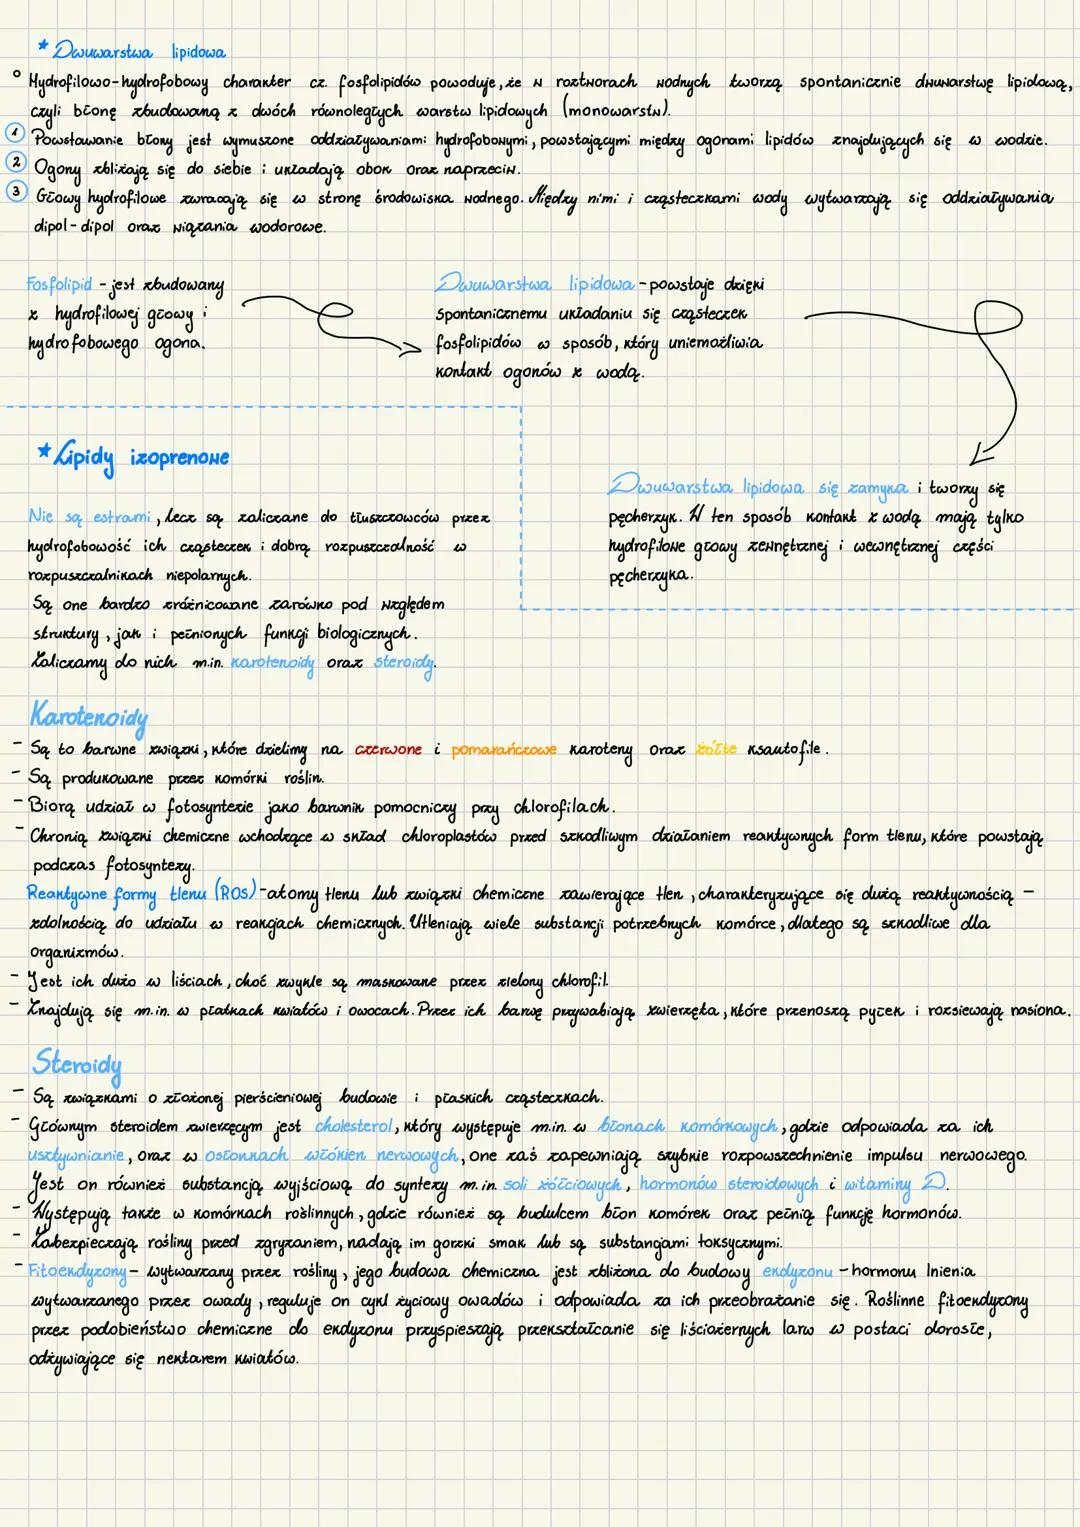 * Dwuwarstwa lipidowa
° Hydrofilowo-hydrofobowy charakter cz. fosfolipidów powoduje, że w roztworach wodnych tworzą spontanicznie dwuwarstwę lipidową,
czyli błonę zbudowaną z dwóch równoległych warstw lipidowych (monowarstw).
1 Powstawanie błony jest wymuszone oddziaływaniami hydrofobowymi, powstającymi między ogonami lipidów znajdujących się w wodzie.
2 Ogony zbliżają się do siebie i układają obok oraz naprzeciw.
3 Głowy hydrofilowe zwracają się w stronę środowiska wodnego. Między nimi i cząsteczkami wody wytwarzają się oddziaływania
dipol-dipol oraz wiązania wodorowe.
Fosfolipid - jest zbudowany
z hydrofilowej głowy i
hydrofobowego ogona.
Dwuwarstwa lipidowa - powstaje dzięki
spontanicznemu układaniu się cząsteczek
fosfolipidów w sposób, który uniemożliwia
kontakt ogonów z wodą.
Dwuwarstwa lipidowa się zamyka i tworzy się
pęcherzyk. W ten sposób kontakt z wodą mają tylko
hydrofilowe głowy zewnętrznej i wewnętrznej części
pęcherzyka.
* Lipidy izoprenowe
Nie są estrami, lecz są zaliczane do tłuszczowców przez
hydrofobowość ich cząsteczek i dobrą rozpuszczalność w
rozpuszczalnikach niepolarnych.
Są one bardzo zróżnicowane zarówno pod względem
struktury, jak i pełnionych funkcji biologicznych.
Zaliczamy do nich m.in. karotenoidy oraz steroidy.
Karotenoidy
- Są to barwne związki, które dzielimy na czerwone i pomarańczowe karoteny oraz żółte ksantofile.
- Są produkowane przez komórki roślin.
- Biorą udział w fotosyntezie jako barwnik pomocniczy przy chlorofilach.
- Chronią związki chemiczne wchodzące w skład chloroplastów przed szkodliwym działaniem reaktywnych form tlenu, które powstają
podczas fotosyntezy.
Reaktywne formy tlenu (ROS) - atomy tlenu lub związki chemiczne zawierające tlen, charakteryzujące się dużą reaktywnością -
zdolnością do udziału w reakcjach chemicznych. Utleniają wiele substancji potrzebnych komórce, dlatego są szkodliwe dla
organizmów.
- Jest ich dużo w liściach, choć zwykle są maskowane przez zielony chlorofil.
- Znajdują się m.in. w płatkach kwiatów i owocach. Przez ich barwę przywabiają zwierzęta, które przenoszą pyłek i rozsiewają nasiona.
Steroidy
- Są związkami o złożonej pierścieniowej budowie i płaskich cząsteczkach.
- Głównym steroidem zwierzęcym jest cholesterol, który występuje m.in. w błonach komórkowych, gdzie odpowiada za ich
usztywnianie, oraz w osłonkach włókien nerwowych, one zaś zapewniają szybkie rozpowszechnienie impulsu nerwowego.
Jest on również substancją wyjściową do syntezy m.in. soli żółciowych, hormonów steroidowych i witaminy D.
- Występują także w komórkach roślinnych, gdzie również są budulcem błon komórek oraz pełnią funkcję hormonów.
- Zabezpieczają rośliny przed zgryzaniem, nadają im gorzki smak lub są substancjami toksycznymi.
- Fitoekdyzony - wytwarzany przez rośliny, jego budowa chemiczna jest zbliżona do budowy ekdyzonu - hormonu linienia
wytwarzanego przez owady, reguluje on cykl życiowy owadów i odpowiada za ich przeobrażanie się. Roślinne fitoekdyzony
przez podobieństwo chemiczne do ekdyzonu przyspieszają przekształcanie się liściożernych larw w postaci dorosłe,
odżywiające się nektarem kwiatów.